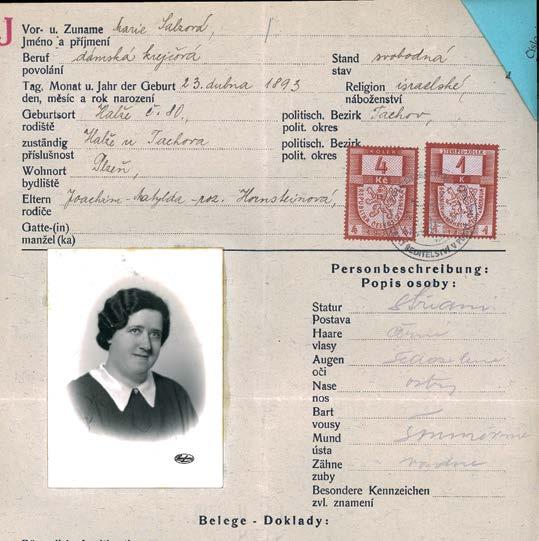 J
Vor- u. Zuname Marie Salzová,
Jméno a příjmení
Beruf dámská krejčová Stand svobodná
povolání stav
Tag. Monat u. Jahr der Geburt 23. dubna 1893 Religion israelské,
den, měsíc a rok narození náboženství
Geburtsort Halže č. 80. politisch. Bezirk Tachov,
rodiště polit. okres
zuständig Halže u Tachova politisch. Bezirk
příslušnost polit. okres
Wohnort Plzeň,
bydliště
Eltern Joachim - Matylda - roz. Hornsteinová,
rodiče
Gatte-(in)
manžel(ka)
KOLEK
4
Kč
STEMPEL-KOLEK
1
K
Personbeschreibung:
Popis osoby:
Statur střední
Postava
Haare černé
vlasy
Augen šedozelené
oči
Nase ostrý
nos
Bart
vousy
Mund souměrné
ústa
Zähne
zuby
Besondere Kennzeichen
zvl. znamení
Belege - Doklady: